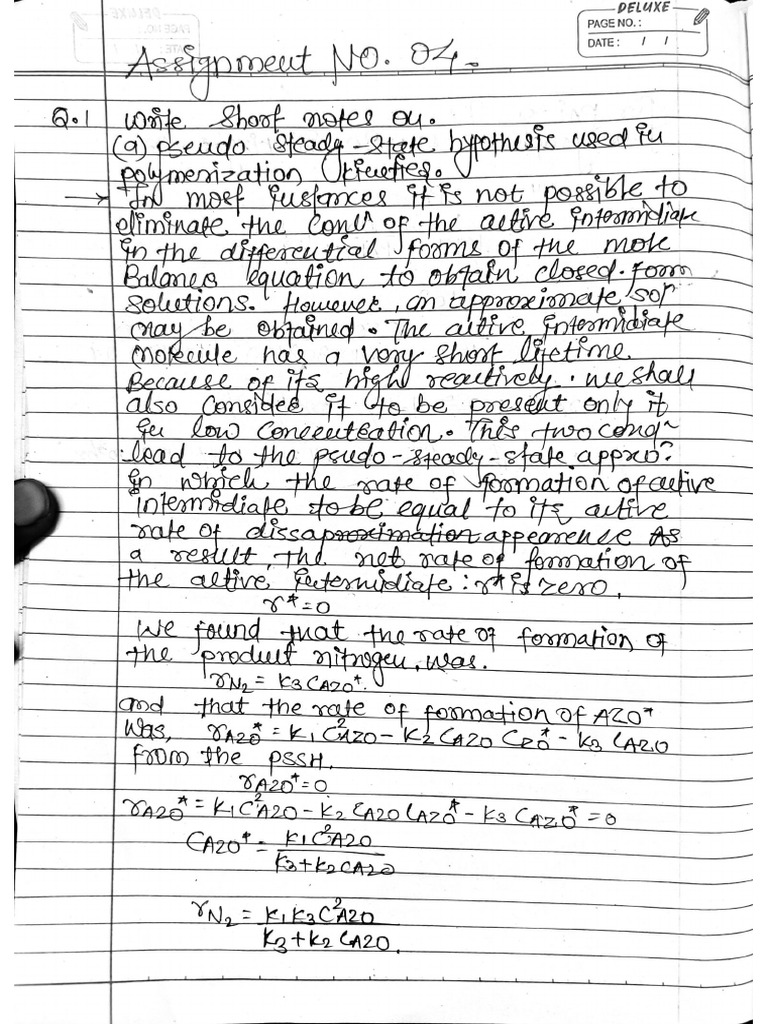 DELUXE
PAGE NO.:
DATE: / /
Assignment NO. 04.
Q.1 Write Short notes on.
(a) pseudo Steady-State hypothesis used in
polymerization kinetics.
→ In most instances it is not possible to
eliminate the concⁿ of the active intermidiate
in the differential forms of the mole
Balance equation to obtain closed-form
solutions. However, an approximate solⁿ
may be obtained. The active intermidiate
molecule has a very short lifetime.
Because of its high reactively. we shall
also consider it to be present only it
in low concentration. This two condⁿ
lead to the psudo-steady-state appro?
in which the rate of formation of active
intermidiate to be equal to its active
rate of dissaproximation appearence As
a result, the net rate of formation of
the active intermidiate: r* is zero,
r*=0
We found that the rate of formation of
the product nitrogen, was.
rN2 = K3 CAZO*.
and that the rate of formation of AZO*
Was, rAZO* = K1 C²AZO - K2 CAZO CZO* - K3 CAZO
from the PSSH,
rAZO* = 0
rAZO* = K1 C²AZO - K2 CAZO CAZO* - K3 CAZO* = 0
CAZO* = K1 C²AZO
K3 + K2 CAZO
rN2 = K1 K3 C²AZO
K3 + K2 CAZO.